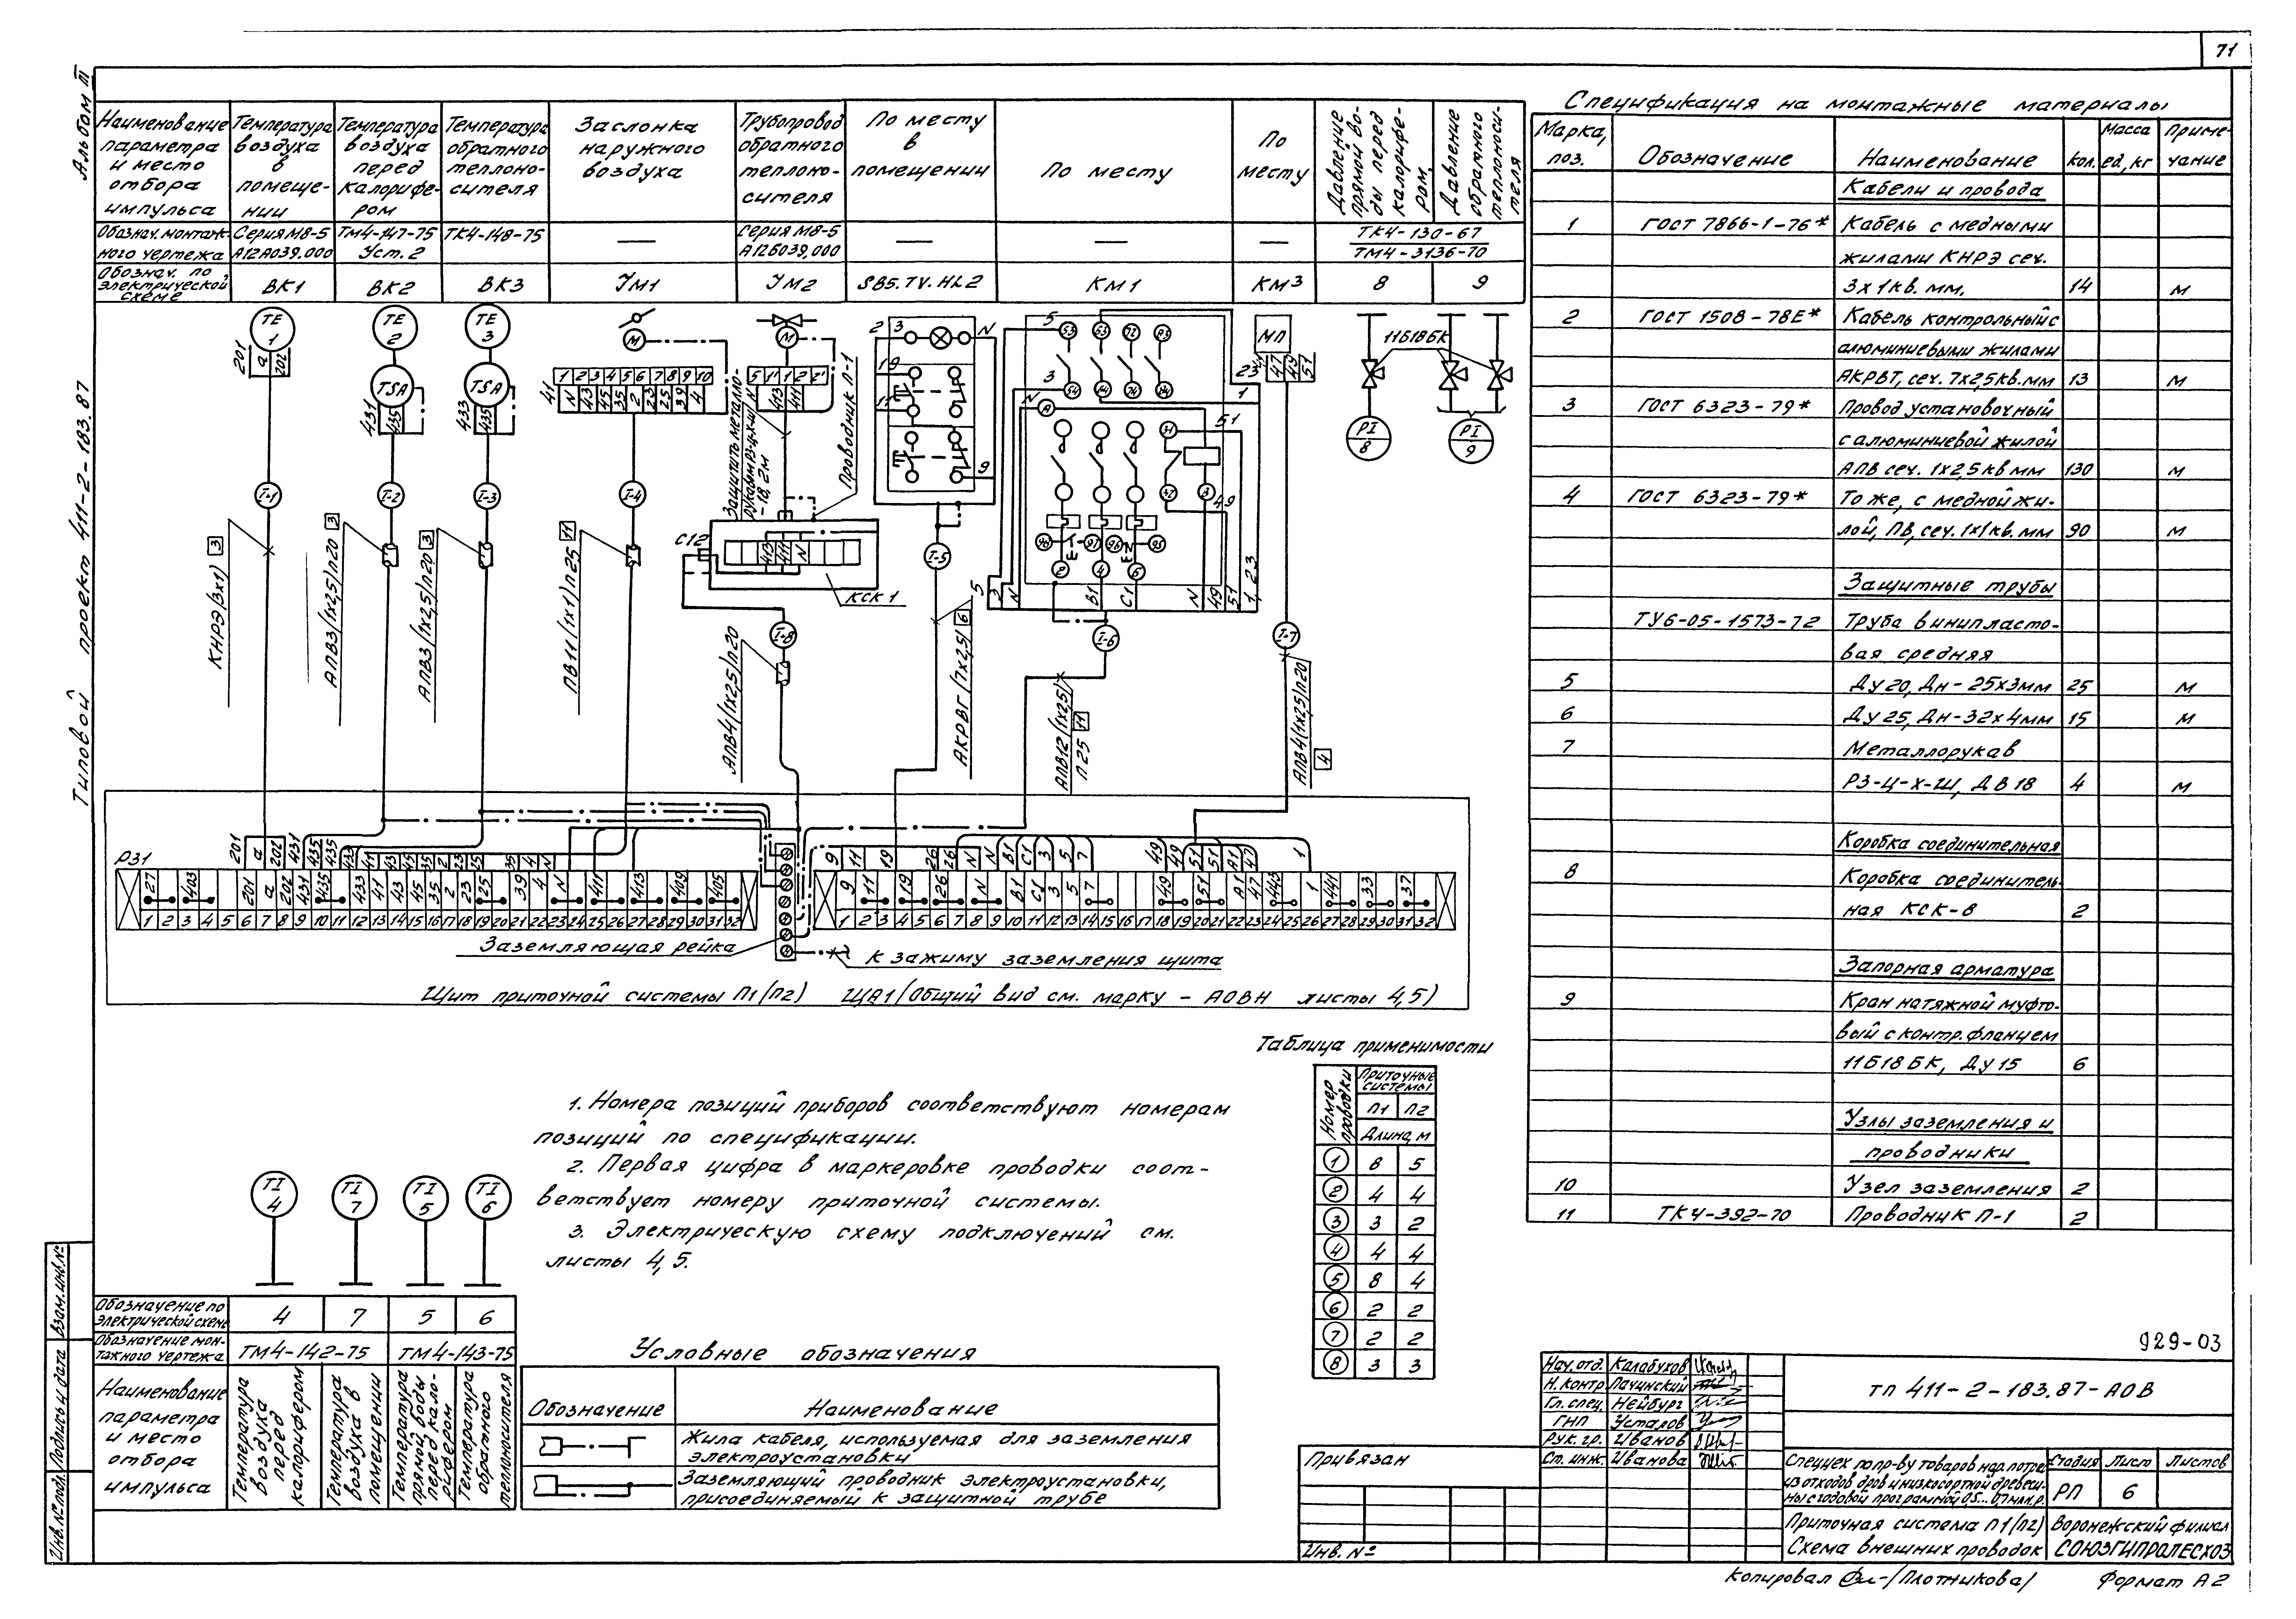 71
Альбом III
Типовой проект 411-2-183.87
Наименование параметра и место отбора импульса
Температура воздуха в помещении
Температура воздуха перед калорифером
Температура обратного теплоносителя
Заслонка наружного воздуха
Трубопровод обратного теплоносителя
По месту в помещении
По месту
По месту
Давление прямой воды перед калорифером
Давление обратного теплоносителя
Обознач. монтажного чертежа
Серия М8-5 А12А039.000
ТМ4-147-75 Уст. 2
ТК4-148-75
—
Серия М8-5 А12Б039.000
—
—
—
ТК4-130-67
ТМ4-3136-70
Обознач. по электрической схеме
ВК1
ВК2
ВК3
УМ1
УМ2
SB5. TV. HL2
КМ1
КМ3
8
9
TE 1
TE 2
TE 3
TSA
TSA
М
М
МП
11Б18БК
PI 8
PI 9
201 а 202
431 435
433 435
1 2 3 4 5 6 7 8 9 10
41 N 43 45 35 2 23 25 39 4
Защитить металлорукавом РЗ-Ц-Х-Ш -18, 2м
Проводник П-1
I-1
I-2
I-3
I-4
I-5
I-6
I-7
I-8
С12
413 411 N
КСК 1
КНРЭ/3х1) 3
АПВ3/(1х2,5)п20 3
АПВ3/(1х2,5)п20 3
ПВ11/(1х1)п25 11
АПВ4/(1х2,5)п20
АКРВГ/(7х2,5) 6
АПВ12/(1х2,5) 11
п25
АПВ4(1х2,5)п20 4
Р31
1 2 3 4 5 6 7 8 9 10 11 12 13 14 15 16 17 18 19 20 21 22 23 24 25 26 27 28 29 30 31 32
1 2 3 4 5 6 7 8 9 10 11 12 13 14 15 16 17 18 19 20 21 22 23 24 25 26 27 28 29 30 31 32
Заземляющая рейка
К зажиму заземления щита
Щит приточной системы П1(П2) ЩА1 (Общий вид см. марку - АОВН листы 4,5)
1. Номера позиций приборов соответствуют номерам
позиций по спецификации.
2. Первая цифра в маркеровке проводки соот-
ветствует номеру приточной системы.
3. Электрическую схему подключений см.
листы 4, 5.
Таблица применимости
Номер проводки
Приточные системы
П1 П2
Длина, м
1 8 5
2 4 4
3 3 2
4 4 4
5 8 4
6 2 2
7 2 2
8 3 3
TI 4
TI 7
TI 5
TI 6
Обозначение по электрической схеме
4 7 5 6
Обозначение монтажного чертежа
ТМ4-142-75
ТМ4-143-75
Наименование параметра и место отбора импульса
Температура воздуха перед калорифером
Температура воздуха в помещении
Температура прямой воды перед калорифером
Температура обратного теплоносителя
Условные обозначения
Обозначение Наименование
Жила кабеля, используемая для заземления
электроустановки
Заземляющий проводник электроустановки,
присоединяемый к защитной трубе
Спецификация на монтажные материалы
Марка, поз. Обозначение Наименование Кол. Масса ед, кг Примечание
Кабели и провода
1 ГОСТ 7866-1-76* Кабель с медными
жилами КНРЭ сеч.
3х1кв. мм. 14 м
2 ГОСТ 1508-78Е* Кабель контрольный с
алюминиевыми жилами
АКРВГ, сеч. 7х2,5кв.мм 13 м
3 ГОСТ 6323-79* Провод установочный
с алюминиевой жилой
АПВ сеч. 1х2,5 кв мм 130 м
4 ГОСТ 6323-79* То же, с медной жи-
лой, ПВ, сеч. 1х1кв. мм 90 м
Защитные трубы
ТУ6-05-1573-72 Труба винипласто-
вая средняя
5 Ду 20, Дн - 25х3мм 25 м
6 Ду 25, Дн-32х4мм 15 м
7 Металлорукав
РЗ-Ц-Х-Ш, ДВ18 4 м
Коробка соединительная
8 Коробка соединитель-
ная КСК-8 2
Запорная арматура
9 Кран натяжной муфто-
вый с контр. фланцем
11Б18БК, Ду 15 6
Узлы заземления и
проводники
10 Узел заземления 2
11 ТК4-392-70 Проводник П-1 2
929-03
Нач. отд. Калабухов
Н. контр Лачинский
Гл. спец. Нейбург
ГНП Усталов
Рук. гр. Иванов
Ст. инж. Иванова
ТП 411-2-183.87-АОВ
Спеццех по пр-ву товаров нар. потреб.
из отходов дров и низкосортной древеси-
ны с годовой программой 0,5... 0,7 млн. р.
Стадия Лист Листов
РП 6
Приточная система П1(П2)
Схема внешних проводок
Воронежский филиал
СОЮЗГИПРОЛЕСХОЗ
Привязан
Инв. №
Инв. № подл. Подпись и дата Взам. инв. №
Копировал (Плотникова) Формат А2